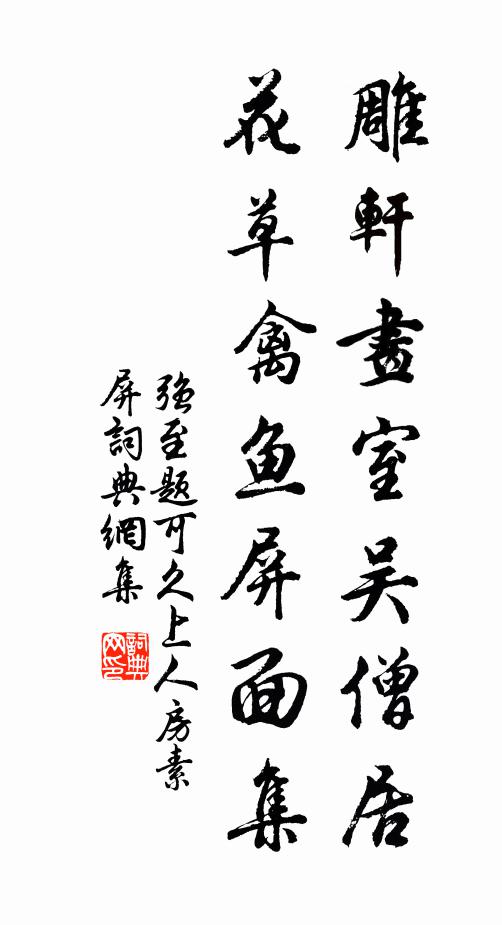 雕軒畫室吴僧居
花草禽鱼屏面集
强至題可久上人房素
屏詞典網集